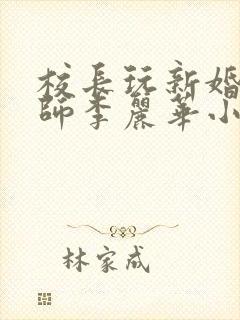 校長玩新婚
師李麗華小
林家成